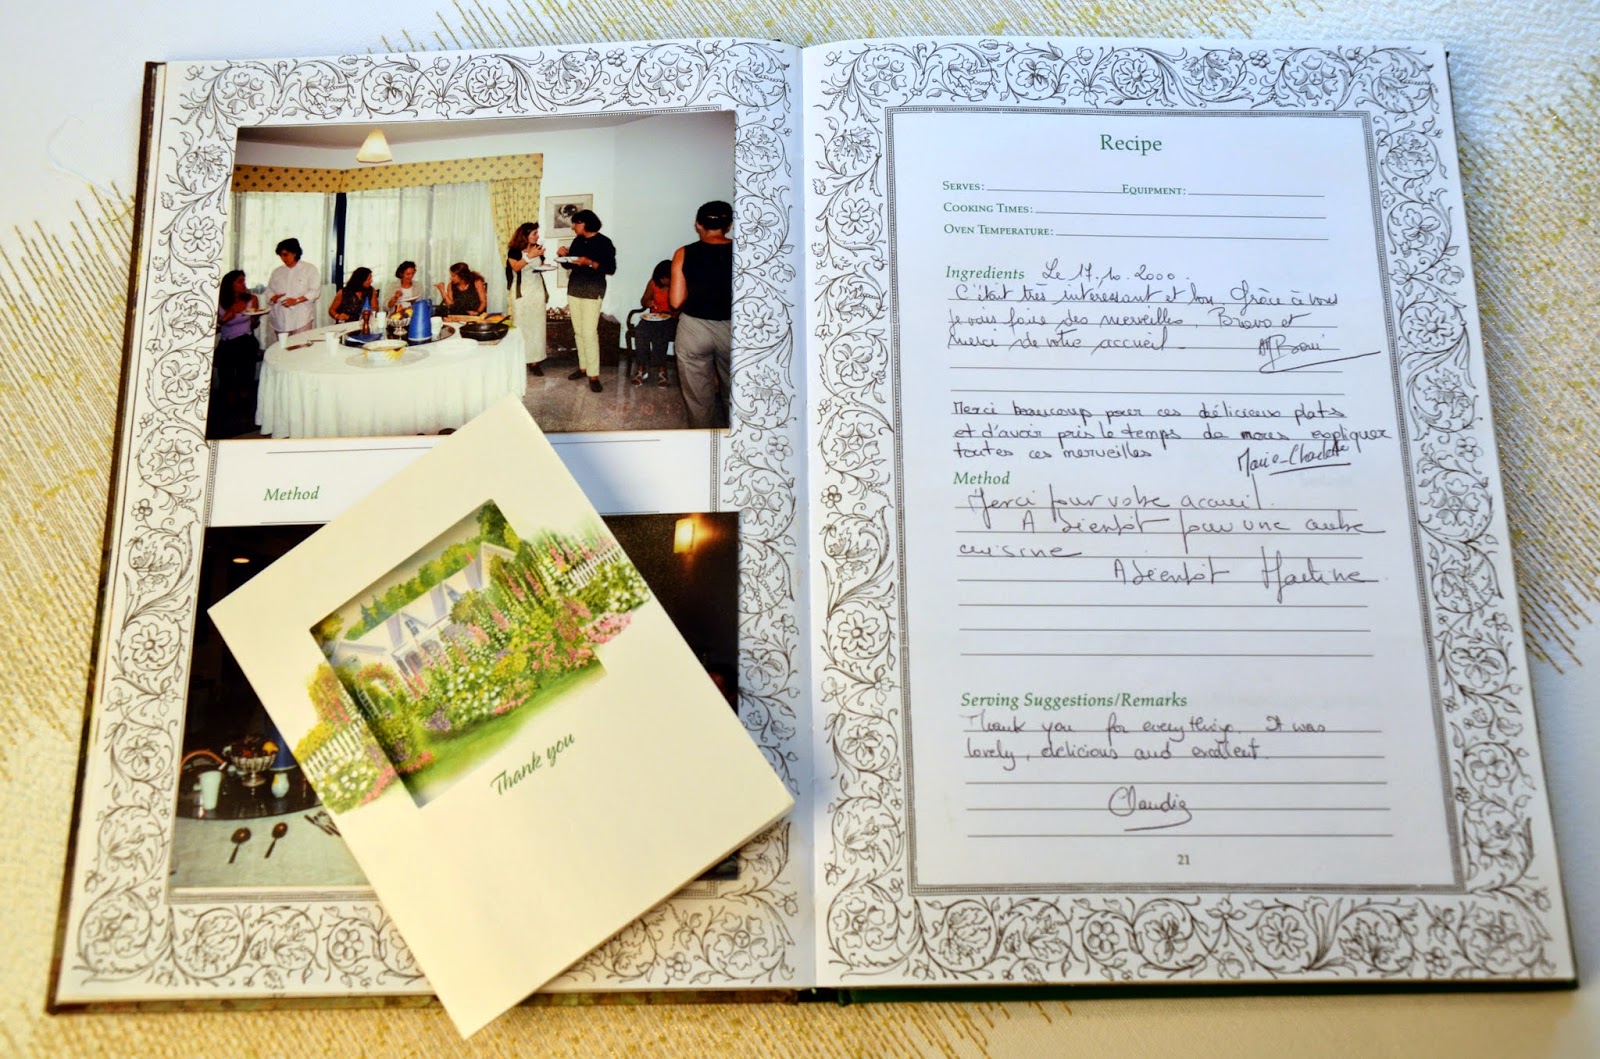 Method
Thank you
Recipe
SERVES: EQUIPMENT:
COOKING TIMES:
OVEN TEMPERATURE:
Ingredients Le 17.10.2000.
C'était très intéressant et bon. Grâce à vous
je vais faire des merveilles. Bravo et
Merci de votre accueil.
Merci beaucoup pour ces délicieux plats
et d'avoir pris le temps de nous expliquer
toutes ces merveilles
Marie-Charlotte
Method
Merci pour votre accueil.
A bientôt pour une autre
cuisine
A bientôt Martine
Serving Suggestions/Remarks
Thank you for everything. It was
lovely, delicious and excellent.
Claudia
21